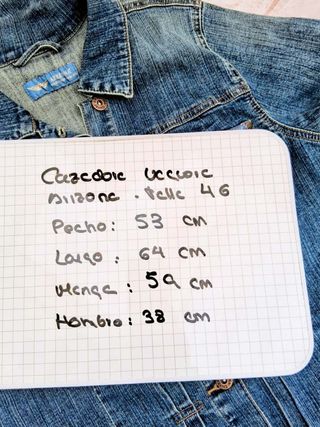 Cazadora vaquera
Arizona . Talla 46
Pecho: 53 cm
Largo: 64 cm
Manga: 59 cm
Hombro: 38 cm